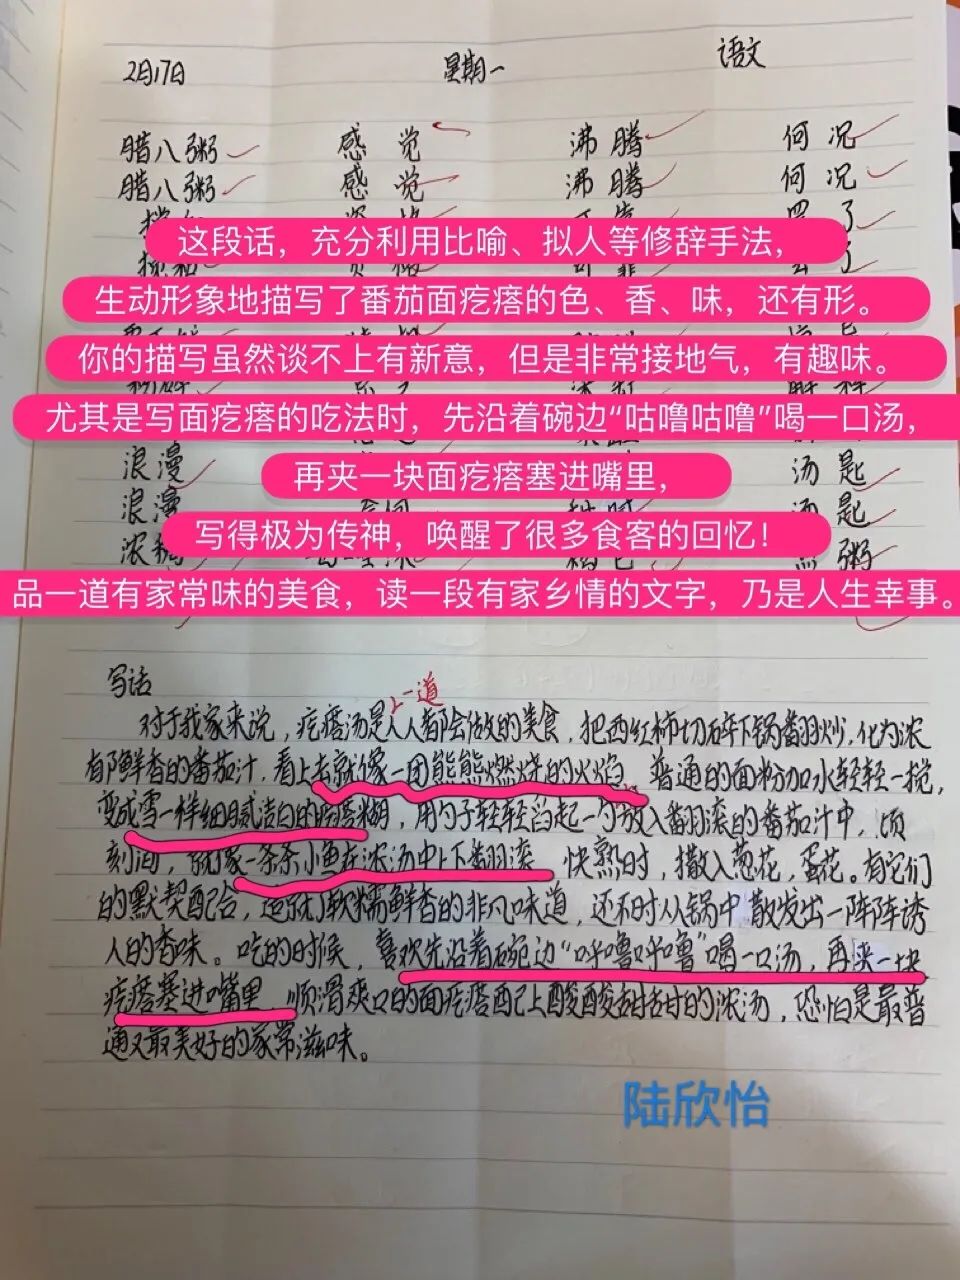 2月17日 星期一 语文
腊八粥 感觉 沸腾 何况
腊八粥 感觉 沸腾 何况
这段话，充分利用比喻、拟人等修辞手法，
生动形象地描写了番茄面疙瘩的色、香、味，还有形。
你的描写虽然谈不上有新意，但是非常接地气，有趣味。
尤其是写面疙瘩的吃法时，先沿着碗边“咕噜咕噜”喝一口汤，
浪漫 汤匙
再夹一块面疙瘩塞进嘴里，
浪漫 汤匙
写得极为传神，唤醒了很多食客的回忆！
品一道有家常味的美食，读一段有家乡情的文字，乃是人生幸事。
写话
一道
对于我家来说，疙瘩汤是人人都会做的美食，把西红柿切碎下锅翻炒，化为浓
郁鲜香的番茄汁，看上去就像一团熊熊燃烧的火焰。普通的面粉加水轻轻一搅，
变成雪一样细腻洁白的疙瘩糊，用勺子轻轻舀起一勺放入翻滚的番茄汁中，顷
刻间，就像一条条小鱼在浓汤中上下翻滚。快熟时，撒入葱花，蛋花。有它们
的默契配合，造就了软糯鲜香的非凡味道，还不时从锅中散发出一阵阵诱
人的香味。吃的时候，喜欢先沿着碗边“呼噜呼噜”喝一口汤，再夹一块
疙瘩塞进嘴里，顺滑爽口的面疙瘩配上酸酸甜甜的浓汤，恐怕是最普
通又最美好的家常滋味。
陆欣怡